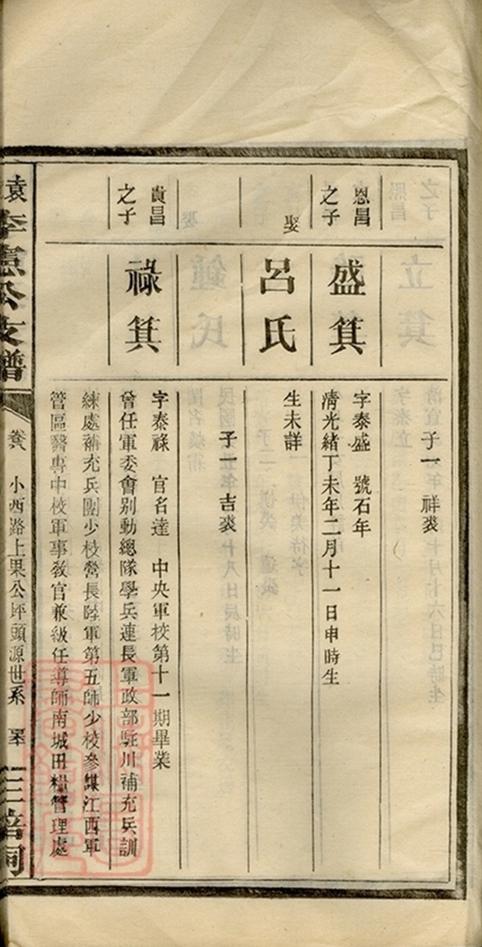 子一 祥裘
恩昌
之子
盛箕
字泰盛 號石年
清光緒丁未年二月十一日申時生
娶
呂氏
生未詳
子一 吉裘
貴昌
之子
祿箕
字泰祿 官名達 中央軍校第十一期畢業
曾任軍委會別動總隊學兵連長軍政部駐川補充兵訓
練處補充兵團少校營長陸軍第五師少校參謀江西軍
管區醫專中校軍事教官兼級任導師南城田糧管理處
袁李憲公支譜
卷八
小西路上果公坪頭源世系